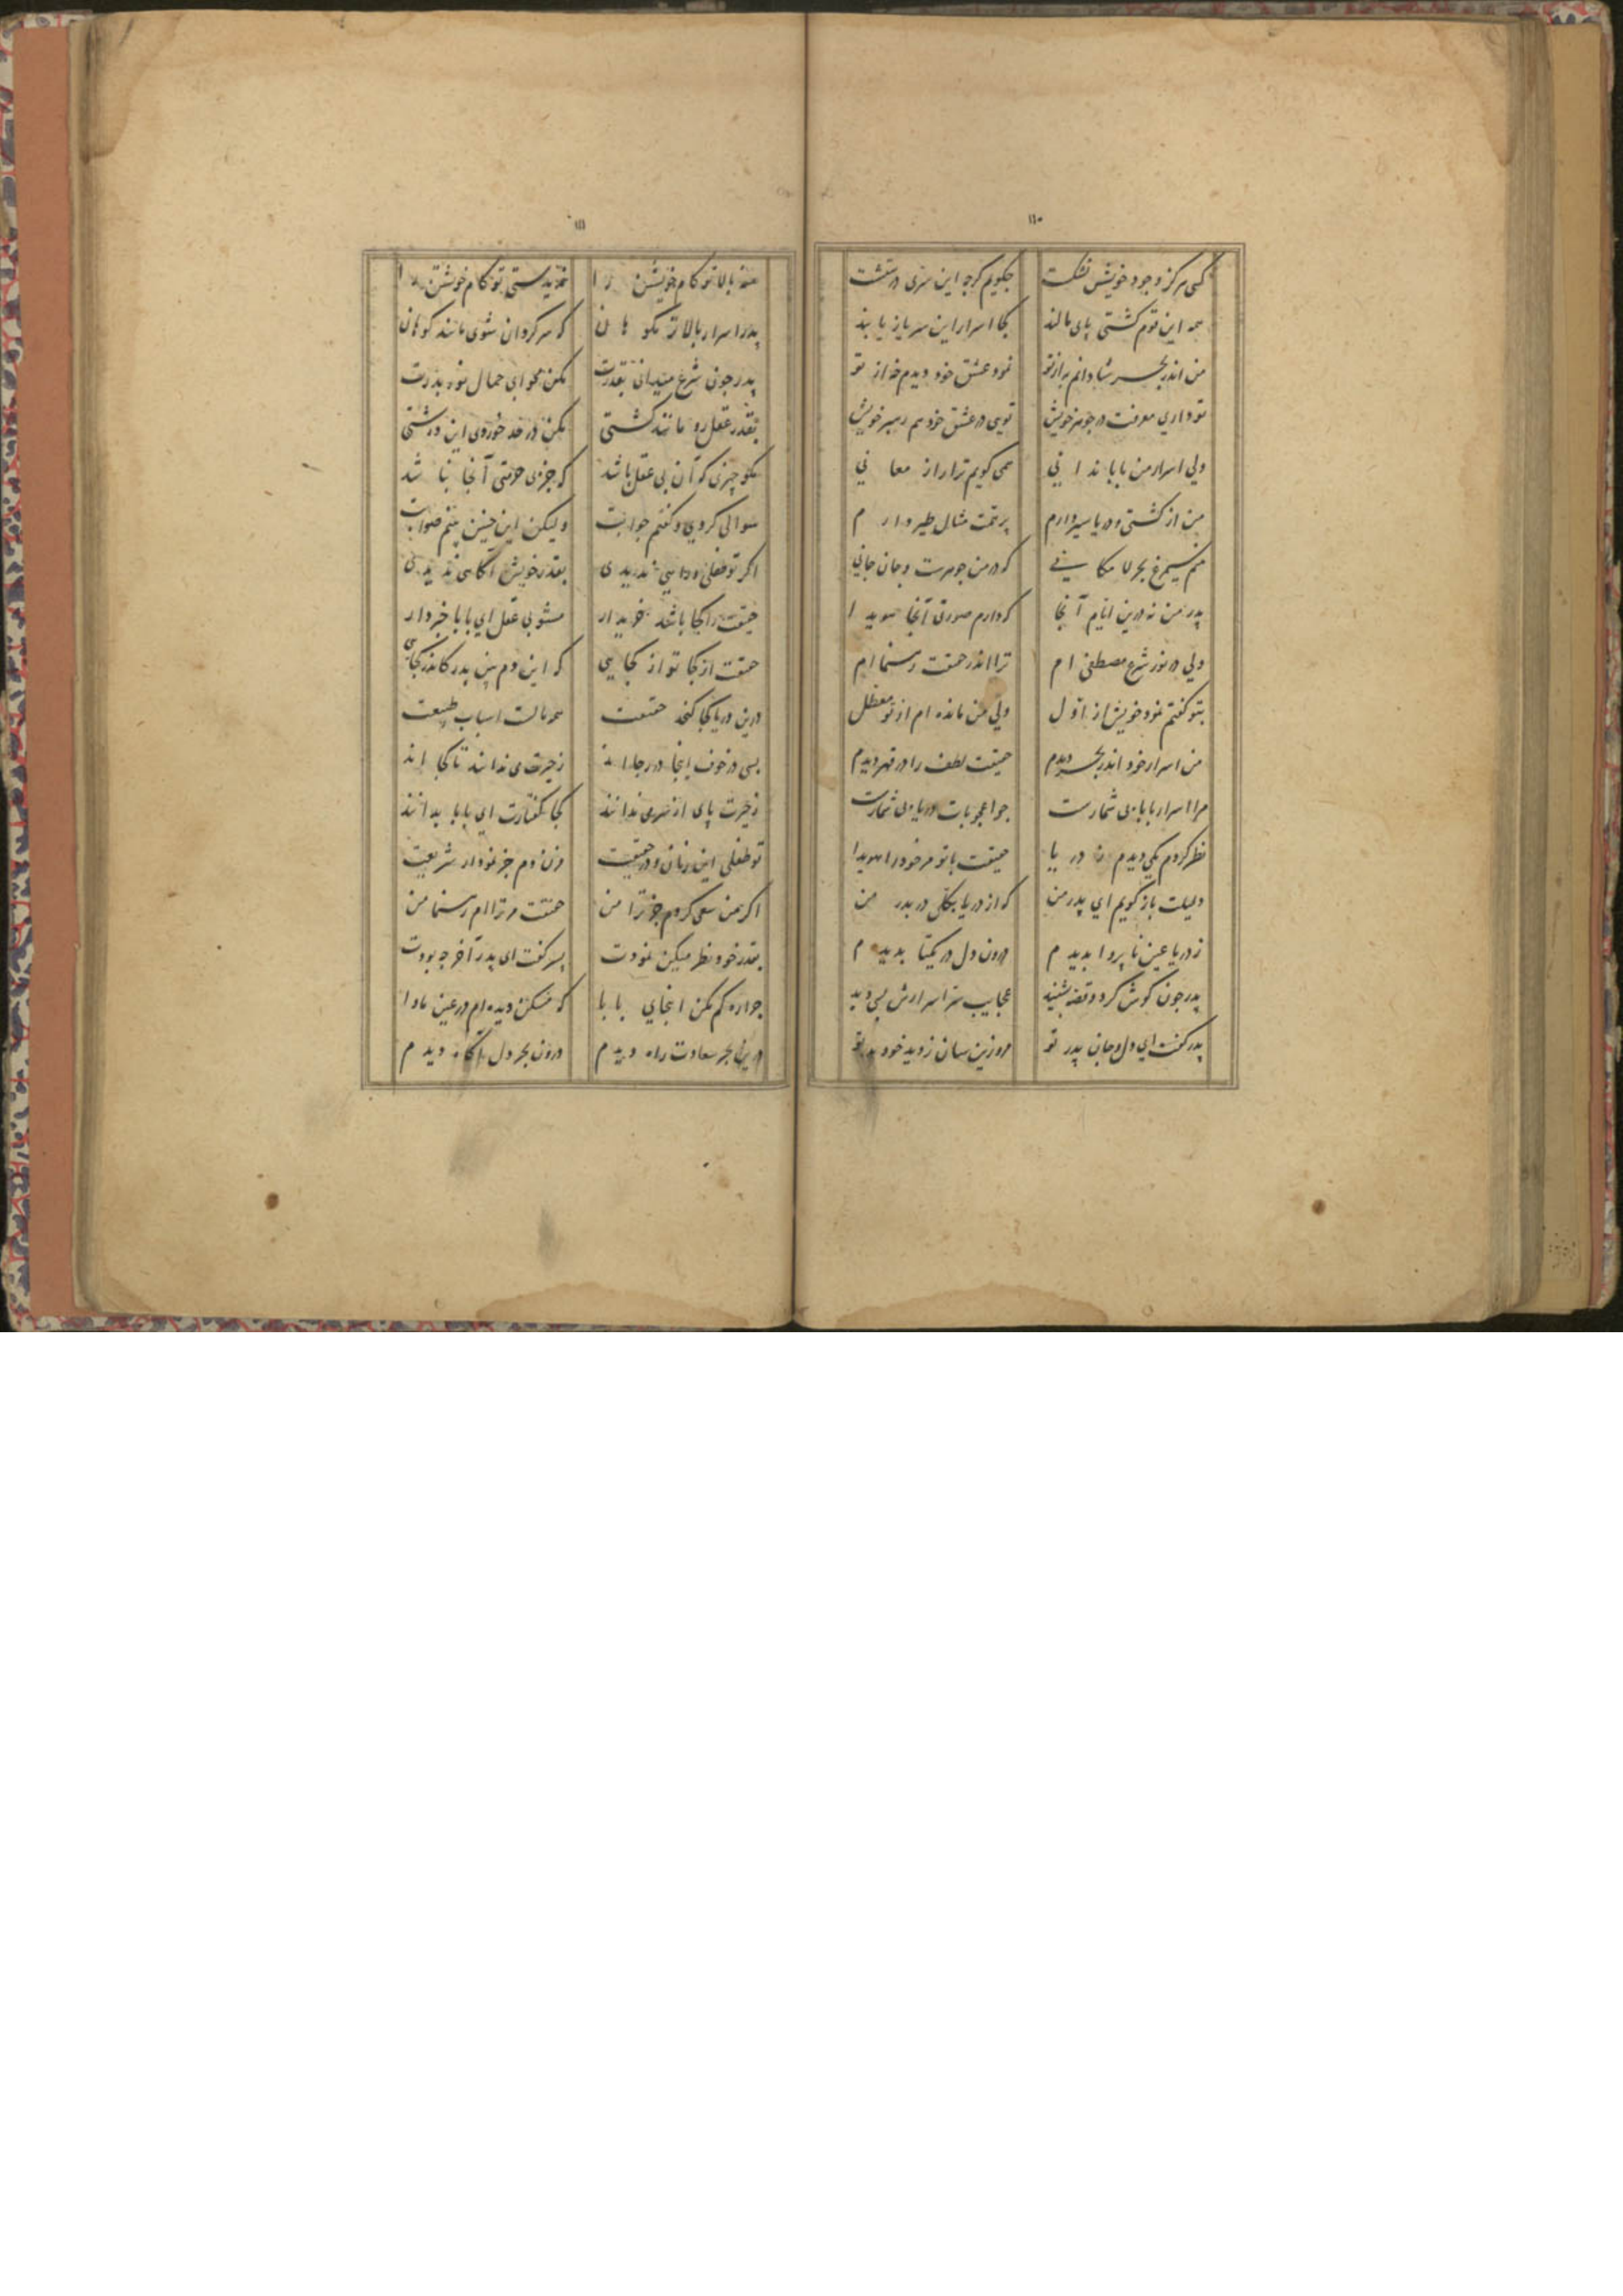 ١١٠
کسی هرکز وجود خویش نشکست جکویم کرجه این سری درستست
همه این قوم کشتی پای مالند کجا اسرار این سر باز یابند
من اندر بحر شادانم نه از تو نمود عشق خود دیدم نه از تو
تو داری معرفت در جوهر خویش تویی در عشق خود هم رهبر خویش
ولی اسرار من بابا ندانی همی کویم ترا راز معانی
من از کشتی و دریا سیر دارم برتمت مثال طیر دارم
منم سیمرغ بحر لامکانی که در من جوهرست و جان جانی
پدر من نه درین ایام آنجا که دارم صورتی آنجا هویدا
ولی در نور شرع مصطفی ام ترا اندر حقیقت رهنما ام
بتو کفتم نمود خویش از اول ولی من مانده ام از تو معطل
من اسرار خود اندر بحر دیدم حقیقت لطف را در قهر دیدم
مرا اسرار بابا بی شمارست جو اعجوبات دریا بی شمارست
نظر کردم یکی دیدم ز دریا حقیقت با تو مر خود را هویدا
دلیلت باز کویم ای پدر من که از دریا بکلی در بدر من
ز دریا عین ناپروا بدیدم درون دل در یکتا بدیدم
پدر جون کوش کرد و قصه بشنید عجایب سر اسرارش بسی دید
پدر کفت ای دل و جان پدر تو مرو زین سان ز دید خود بدر تو
١١١
منه بالا تو کام خویشتن را ندیدستی تو کام خویشتن را
پدر اسرار بالاتر مکو هان که سرکردان شوی مانند کوهان
پدر جون شرع میدانی بقدرت مکن محو ای جمال نوه بدرت
بقدر عقل رو مانند کشتی مکن در حد خوردی این درشتی
مکو چیزی که آن بی عقل باشد که جز بی حرمتی آنجا نباشد
سوالی کردی و کفتم جوابت ولیکن این جنین بینم صوابت
اکر تو طفلی و دانی ندیدی بقدر خویش آکاهی ندیدی
حقیقت را کجا باشد خریدار مشو بی عقل ای بابا خبردار
حقیقت از کجا تو از کجایی که این دم بین پدر کاندر کجایی
درین دریا کجا کنجد حقیقت همه مالت اسباب طبیعت
بسی در خوف اینجا در رجااند ز حیرت می ندانند تا کجااند
ز حیرت پای از سر می ندانند کجا کفتارت ای بابا بدانند
تو طفلی این زمان و در حقیقت مزن دم جز نمودار شریعت
اکر من سعی کردم جز ترا من حقیقت مر ترا ام رهنما من
بقدر خود نظر میکن نمودت پسر کفت ای پدر آخر جه بودت
جوابم کم مکن اینجای بابا که مسکن دیده ام در عین ماوا
درین بحر سعادت راه دیدم درون بحر دل آکاه دیدم